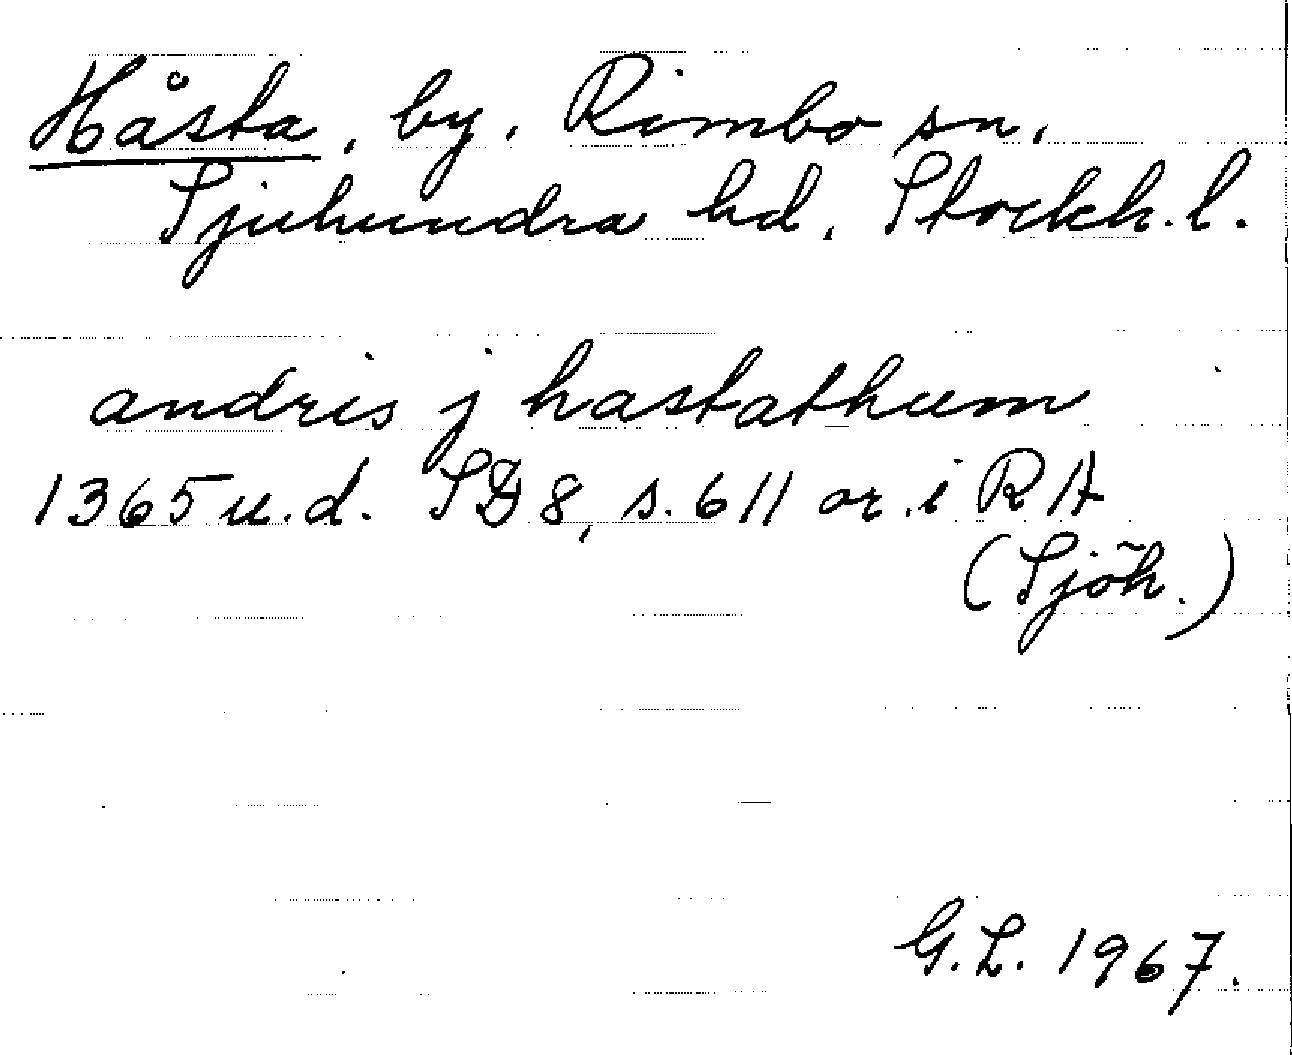 Håsta, by. Rimbo sn.
Sjuhundra hd, Stockh. l.
andris j hastathum
1365 u.d. SD 8, s. 611 or. i RA
(Sjöh.)
G.L. 1967.